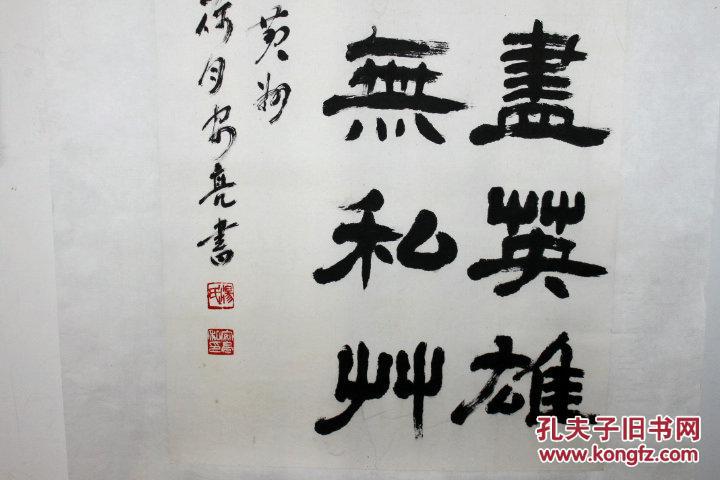 盡英雄
無私艸
黄州
荷月安亮書
孔夫子旧书网
www.kongfz.com